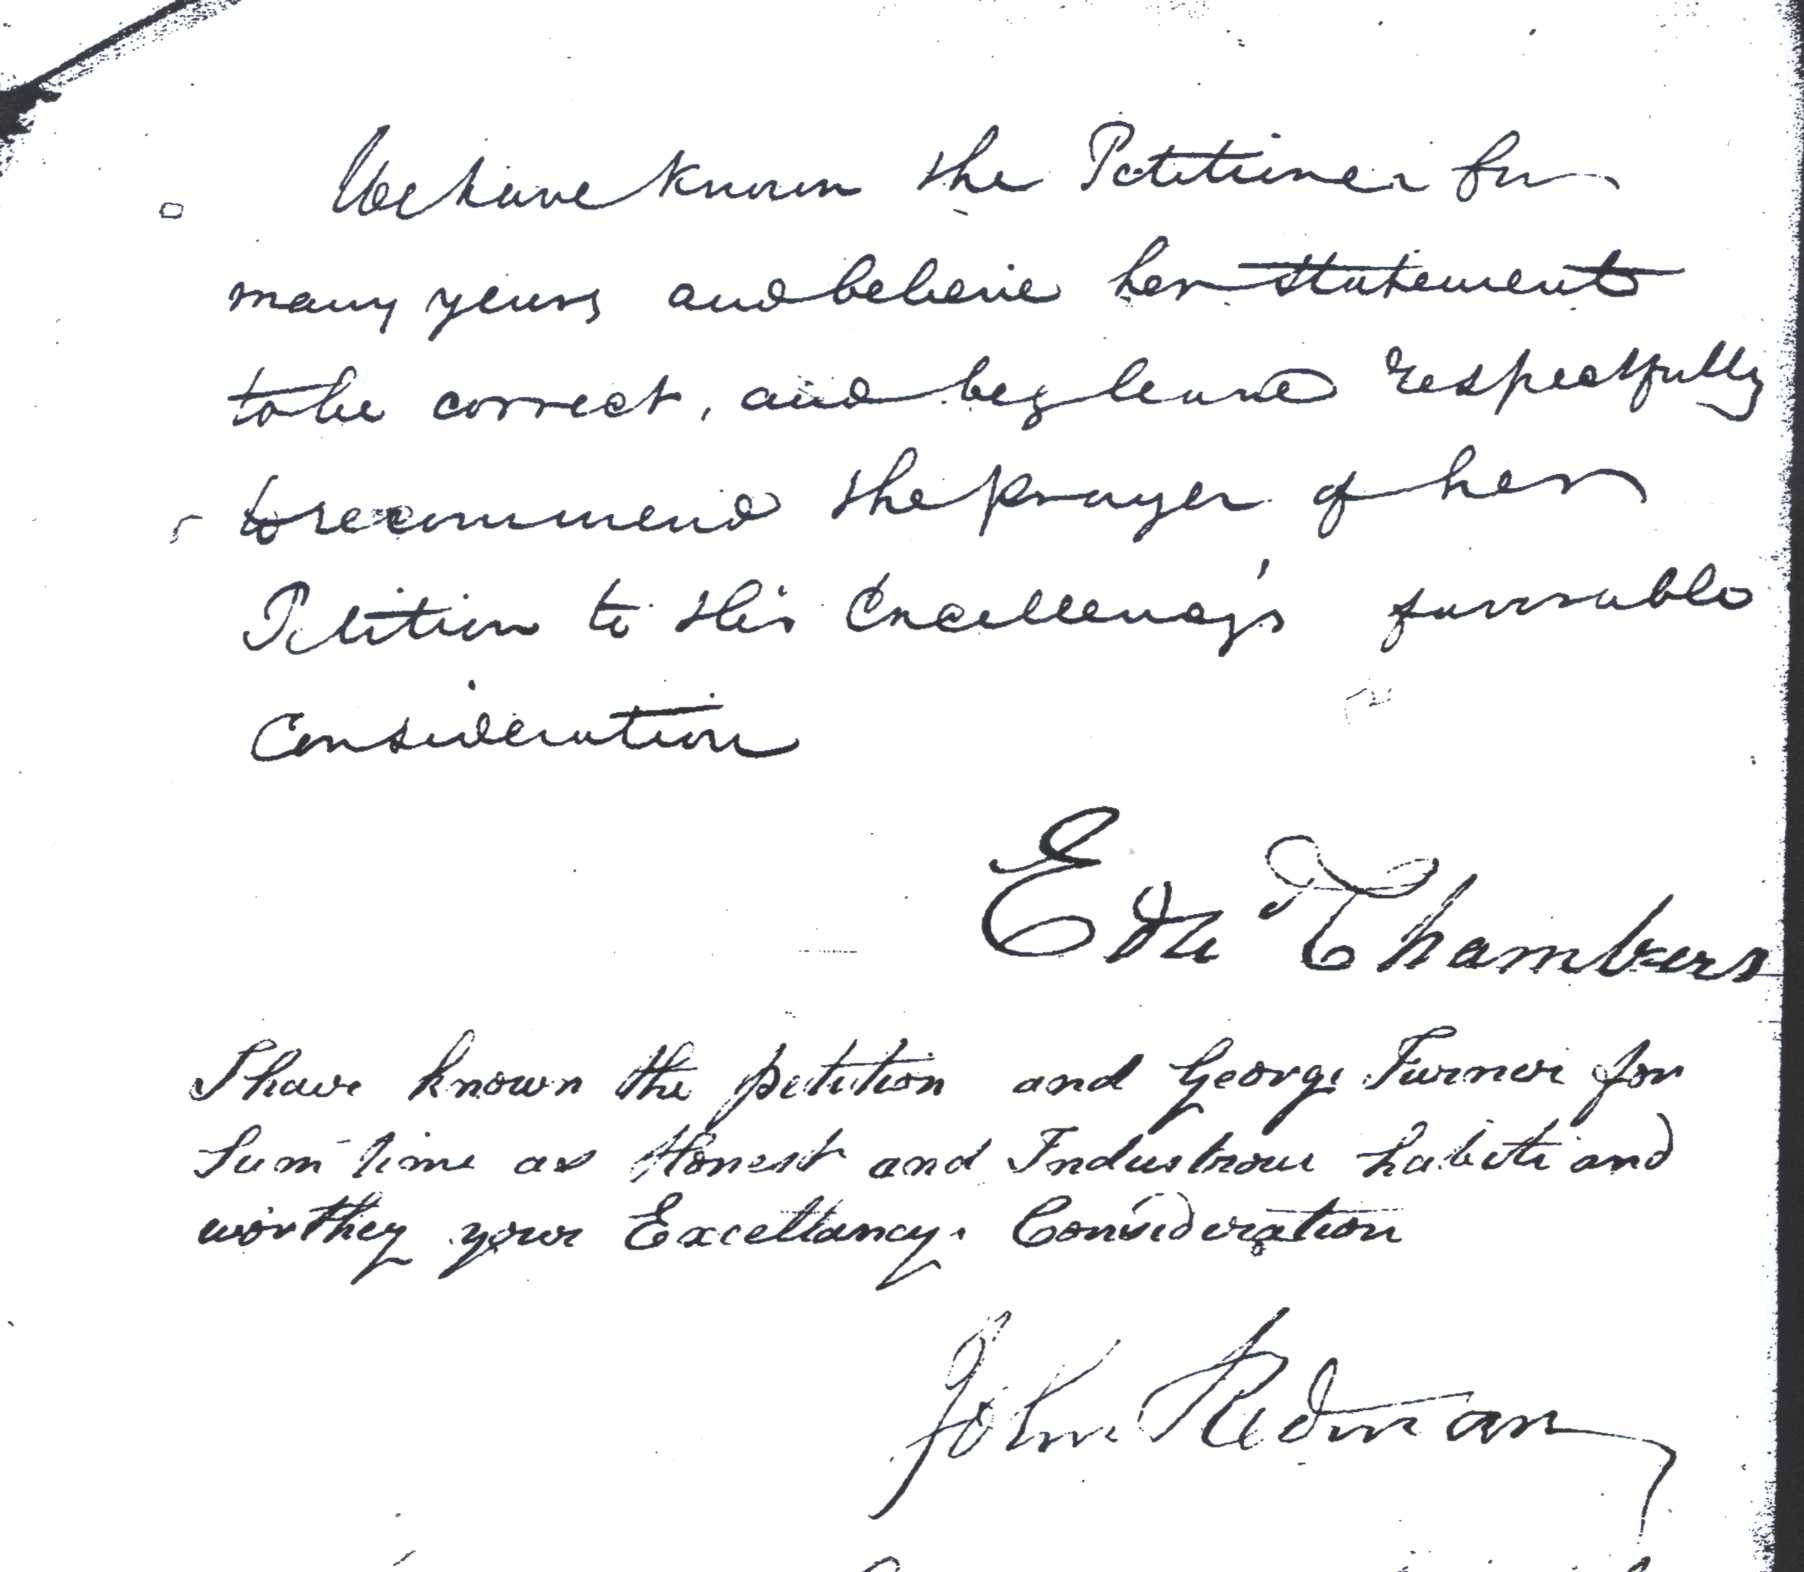 We have known the Petitioner for
many years and believe her statement
to be correct, and beg leave respectfully
to recommend the prayer of her
Petition to His Excellency's favorable
Consideration
Edw Chambers
I have known the petition and George Turner for
Sum time as Honest and Industrous habits and
worthey your Excellancy. Consideration
John Redman